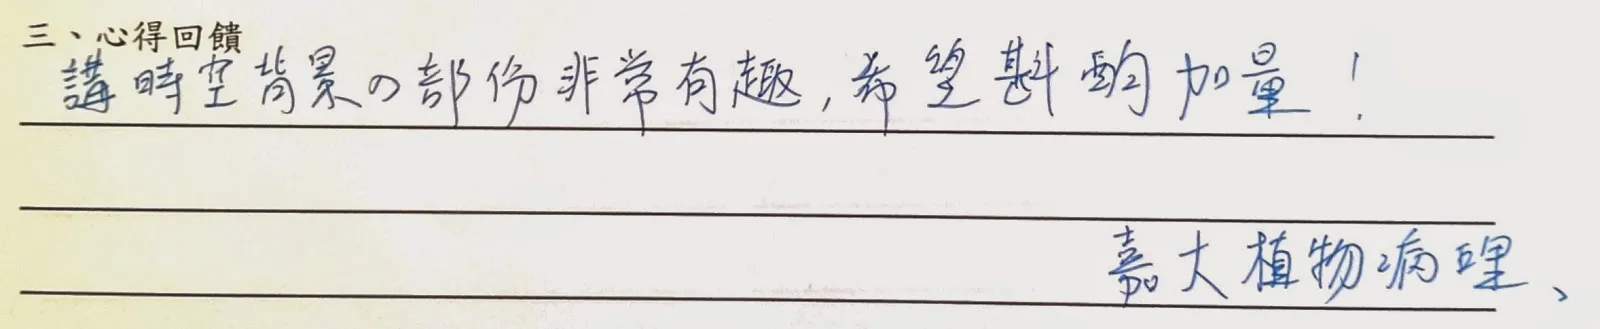 三、心得回饋
講時空背景の部份非常有趣,希望斟酌加量!
嘉大植物病理、